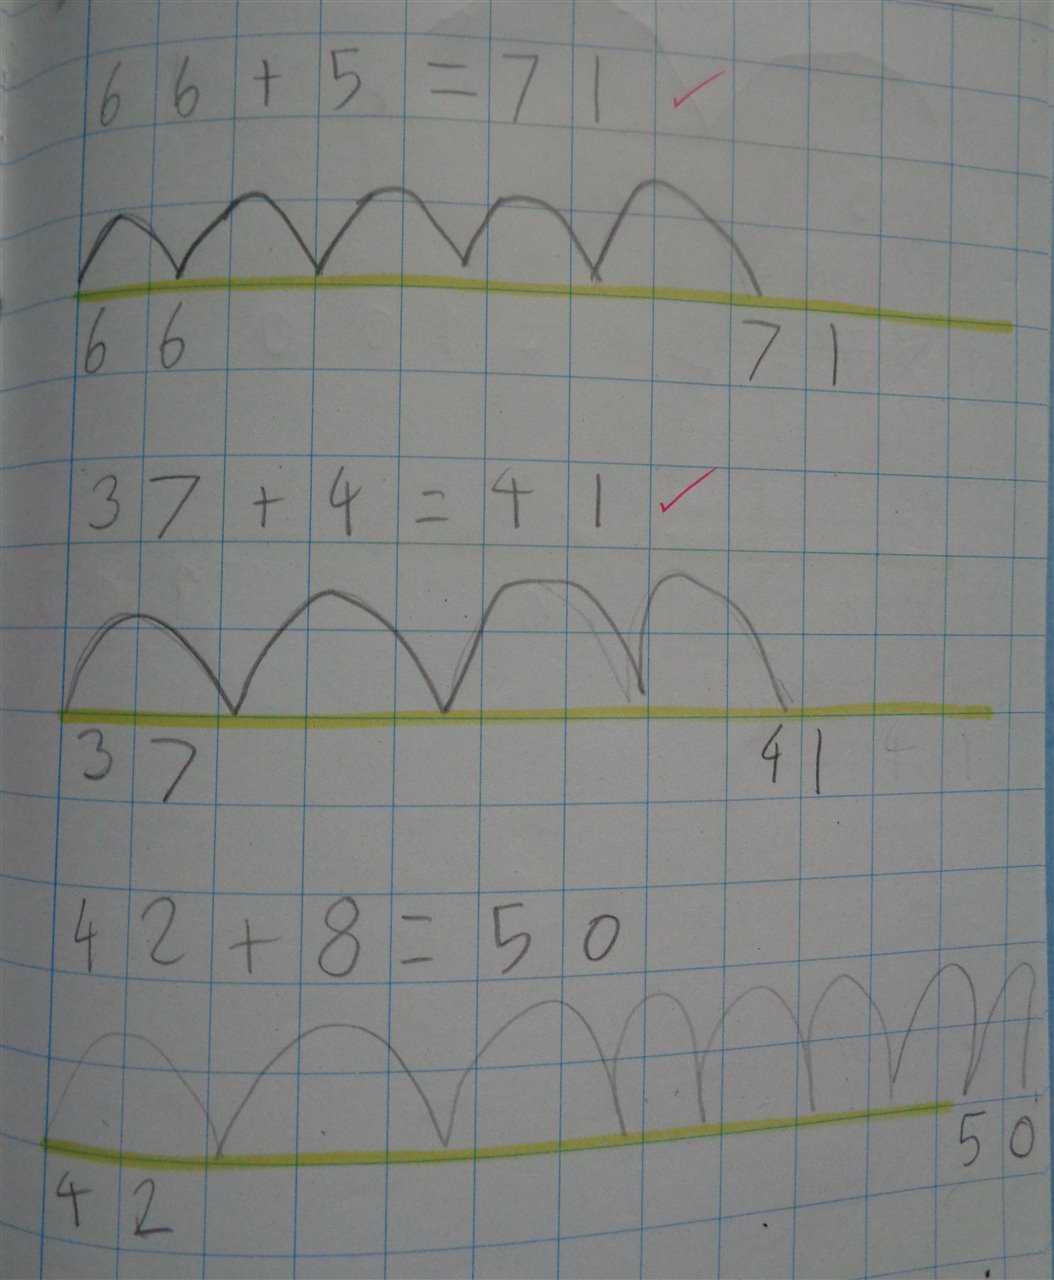 66 + 5 = 71
66 71
37 + 4 = 41
37 41 41
42 + 8 = 50
50
42